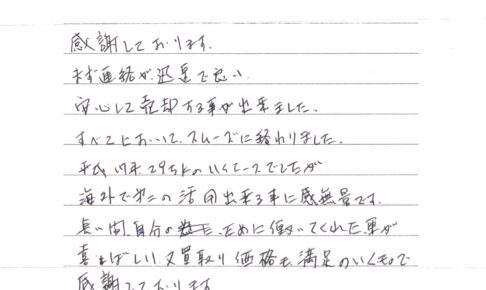 感謝しております。
まず連絡が迅速で良い。
安心して売却する事が出来ました。
すべてにおいて、スムーズに終わりました。
平成 年 29万kのハイエースでしたが
海外で第二の活 出来る事に感無量です。
長い間、自分の ために働いてくれた車が
喜ばしい。又買取り価格も満足のいくもので
感謝しております